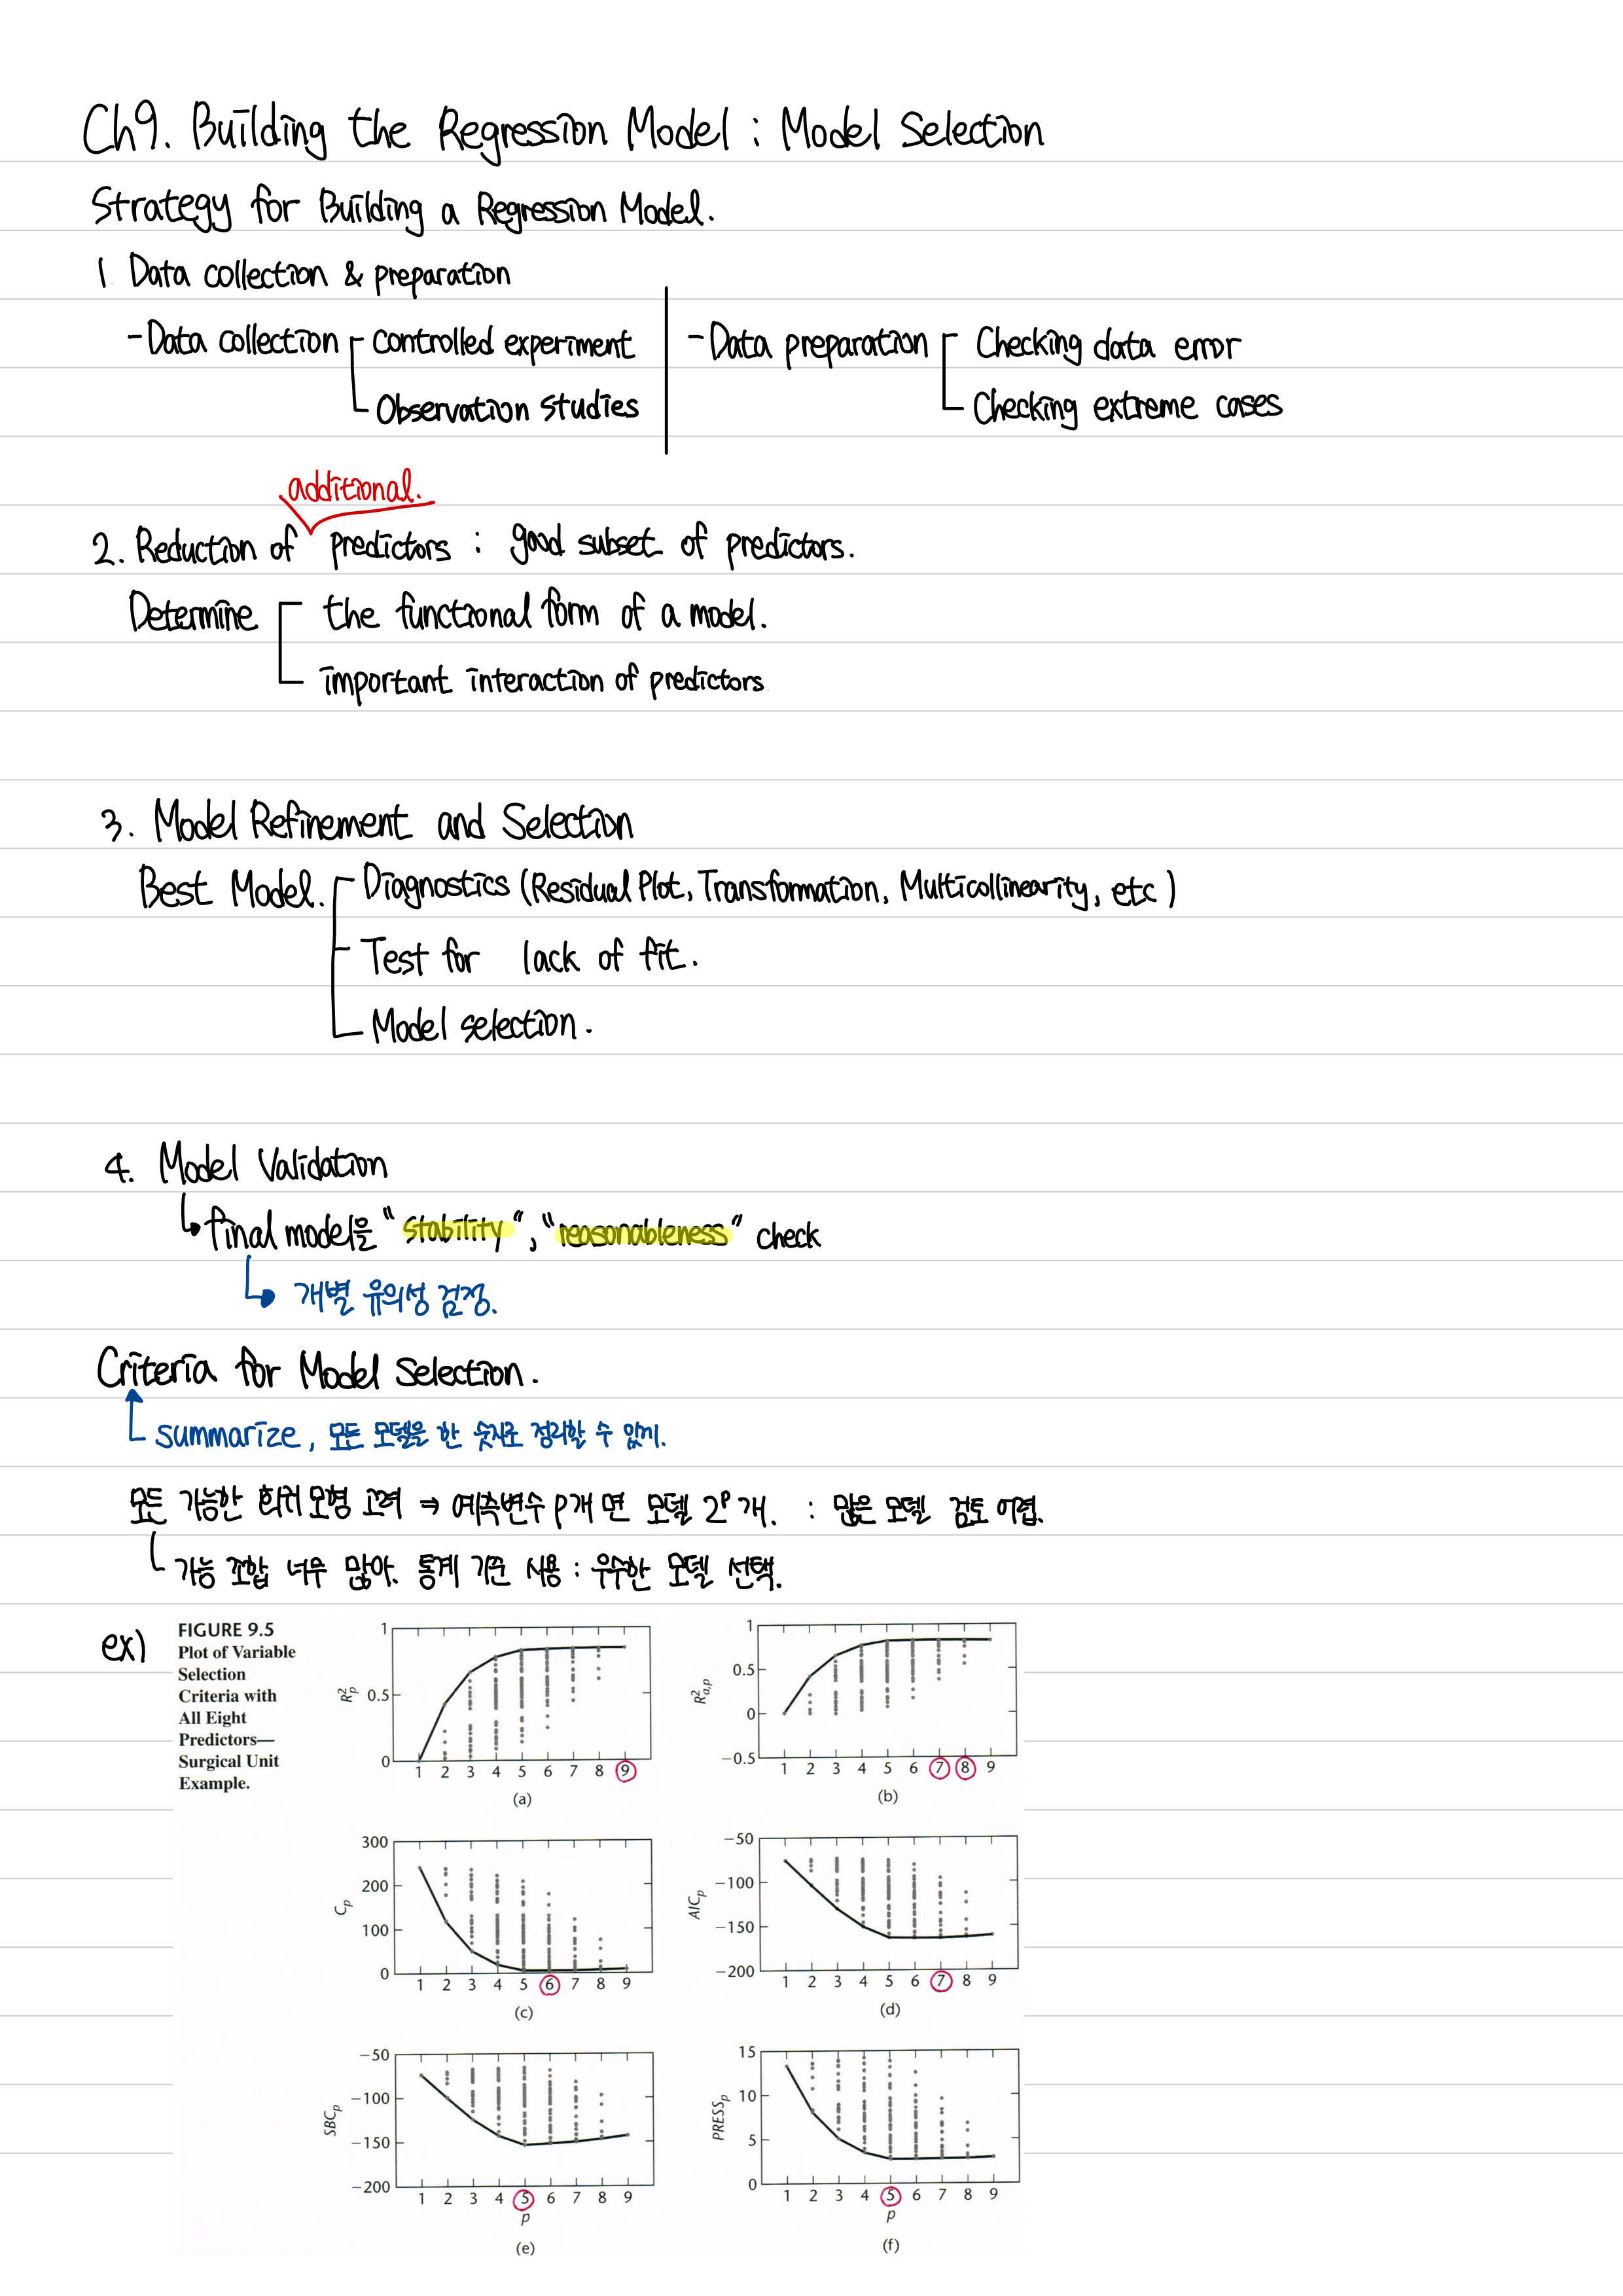 Ch9. Building the Regression Model : Model Selection
Strategy for Building a Regression Model.
1. Data collection & preparation
- Data collection controlled experiment
Observation studies
- Data preparation Checking data error
Checking extreme cases
additional.
2. Reduction of predictors : good subset of predictors.
Determine the functional form of a model.
important interaction of predictors
3. Model Refinement and Selection
Best Model. Diagnostics (Residual Plot, Transformation, Multicollinearity, etc)
Test for lack of fit.
Model selection.
4. Model Validation
final model을 "stability", "reasonableness" check
개별 유의성 검정.
Criteria for Model Selection.
summarize, 모든 모델을 한 숫자로 정리할 수 있게.
모든 가능한 회귀 모형 고려 ⇒ 예측변수 p개 면 모델 2ᵖ개. : 많은 모델 검토 어렵.
가능 조합 너무 많아. 통계 기준 사용 : 우수한 모델 선택.
ex)
FIGURE 9.5
Plot of Variable
Selection
Criteria with
All Eight
Predictors—
Surgical Unit
Example.
R²p
1
0.5
0
1 2 3 4 5 6 7 8 9
(a)
R²a,p
1
0.5
0
−0.5
1 2 3 4 5 6 7 8 9
(b)
Cp
300
200
100
0
1 2 3 4 5 6 7 8 9
(c)
AICp
−50
−100
−150
−200
1 2 3 4 5 6 7 8 9
(d)
SBCp
−50
−100
−150
−200
1 2 3 4 5 6 7 8 9
p
(e)
PRESSp
15
10
5
0
1 2 3 4 5 6 7 8 9
p
(f)